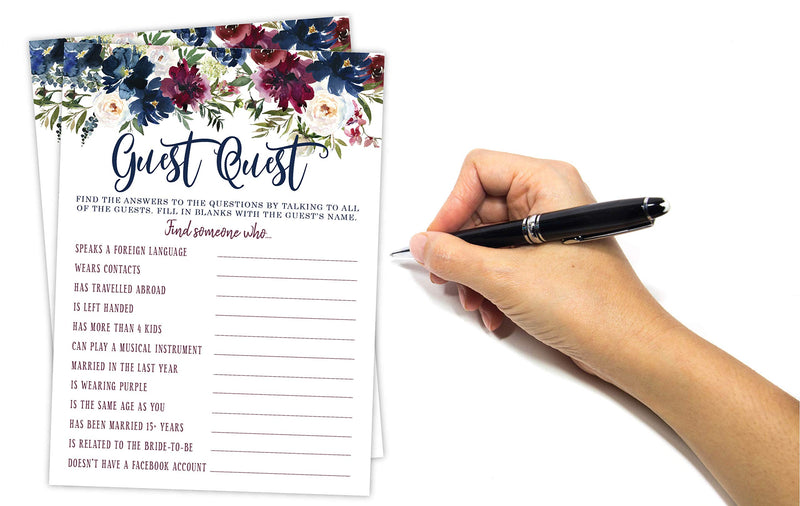 Guest Quest
FIND THE ANSWERS TO THE QUESTIONS BY TALKING TO ALL
OF THE GUESTS. FILL IN BLANKS WITH THE GUEST'S NAME.
Find someone who...
SPEAKS A FOREIGN LANGUAGE
WEARS CONTACTS
HAS TRAVELLED ABROAD
IS LEFT HANDED
HAS MORE THAN 4 KIDS
CAN PLAY A MUSICAL INSTRUMENT
MARRIED IN THE LAST YEAR
IS WEARING PURPLE
IS THE SAME AGE AS YOU
HAS BEEN MARRIED 15+ YEARS
IS RELATED TO THE BRIDE-TO-BE
DOESN'T HAVE A FACEBOOK ACCOUNT